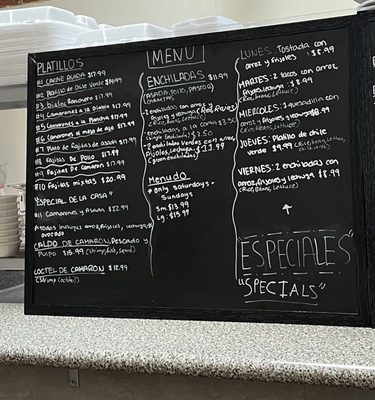 PLATILLOS
#1 CARNE ASADA $17.99
#2 Platillo de Chile Verde
#3 Bistec Ranchero $17.99
#4 Camarones a la Diabla
#5 Camarones a la Plancha
#6 Camarones al mojo de ajo
#7 Plato de Fajitas de asada $17.99
#8 Fajitas De Pollo $17.99
#9 Fajitas De Camaron $17.99
#10 Fajitas mixtas $20.99
"ESPECIAL DE LA CASA"
#11 Camarones y Asada $22.99
avocado
CALDO DE CAMARON, Pescado y
PULPO (shrimp, fish,
COCTEL DE CAMARON $18.99
(Shrimp Cocktail)
MENU
ENCHILADAS $11.99
ASADA, POLLO, PASTOR
2 enchiladas con arroz y
frijoles y lechuga
(2 enchiladas, Rice, Beans)
enchiladas a la carta $3.50
(single Enchiladas) $3.50
2 enchiladas Verdes con arroz,
frijoles, Lechuga $13.99
(Green enchiladas)
Menudo
* Only Saturdays -
Sundays
Sm $13.99
Lg: $15.99
LUNES: Tostada con
arroz y frijoles - $8.99
MARTES: 2 tacos con arroz,
frijoles, lechuga - $8.99
(Rice, beans, lettuce)
MIERCOLES: Quesadilla con
arroz, frijoles y lechuga $8.99
(Rice, beans, lettuce)
JUEVES: Platillo de chile
verde $9.99
VIERNES: 2 enchiladas con
arroz, frijoles y lechuga $8.99
(Rice, beans, lettuce)
ESPECIALES"
"SPECIALS"